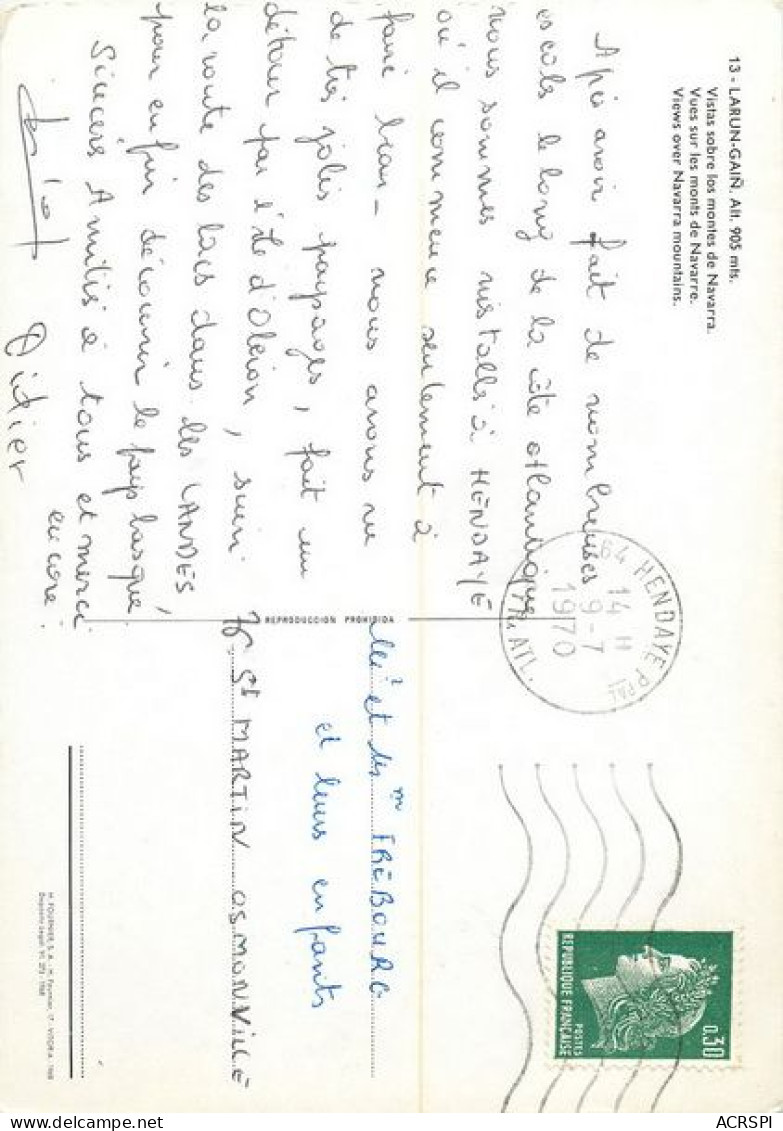 13 - LARUN-GAIÑ. Alt. 905 mts.
Vistas sobre los montes de Navarra.
Vues sur les monts de Navarre.
Views over Navarra mountains.
Après avoir fait de nombreuses
escals le long de la côte atlantique
nous sommes installé à HENDAYE
où il commence seulement à
faire beau - nous avons vu
de très jolis paysages, fait un
détour par l'île d'Oléron, suivi
la route des lacs dans les LANDES
pour enfin découvrir le pays basque.
Sincères Amitiés à tous et merci
encore.
Didier
REPRODUCCION PROHIBIDA
64 HENDAYE PPAL
14 H
9-7
1970
PYR. ATL.
0,30
POSTES
REPUBLIQUE FRANÇAISE
et FREBOURG
et leurs enfants
76. St MARTIN OSMONVILLE
H. FOURNIER, S. A. - H. Fournier, 17 - VITORIA, 1968
Depósito Legal: VI. 273 - 1968
ACRSPI